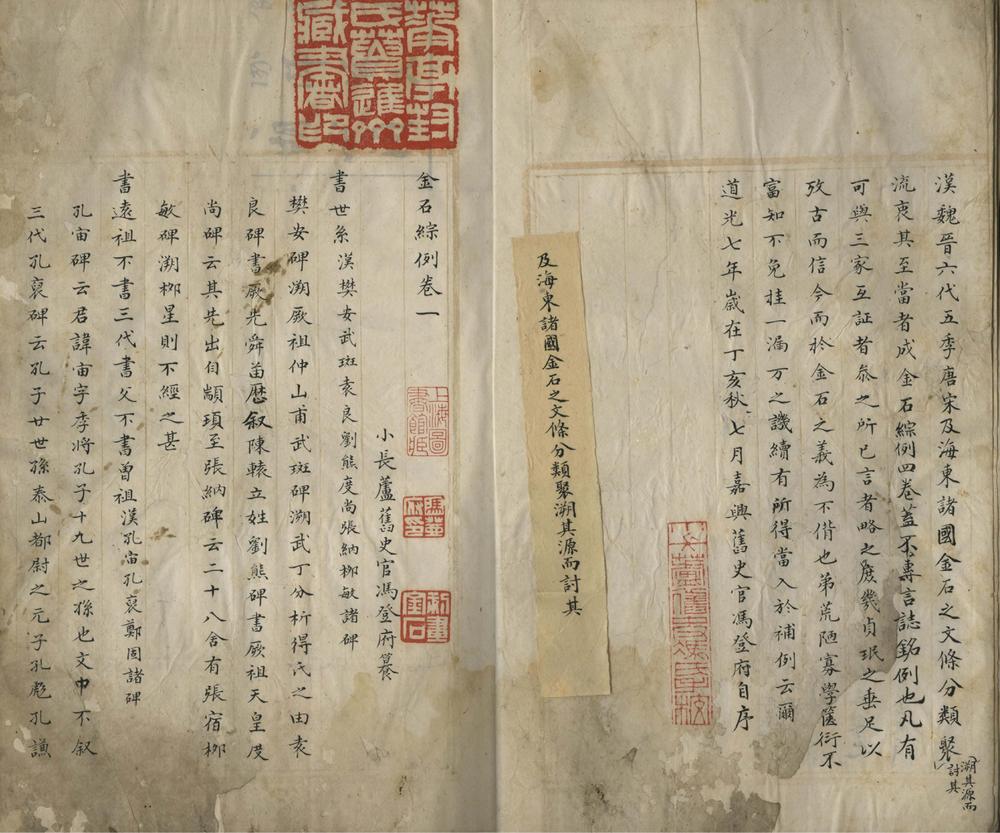 漢魏晉六代五季唐宋及海東諸國金石之文條分類聚
溯其源而
討其
流衷其至當者成金石綜例四卷蓋不專言誌銘例也凡有
可與三家互証者叅之所已言者略之庶幾貞珉之垂足以
攷古而信今而於金石之義為不偝也弟荒陋寡學篋衍不
富知不免挂一漏万之譏續有所得當入於補例云爾
道光七年歲在丁亥秋七月嘉興舊史官馮登府自序
及海東諸國金石之文條分類聚溯其源而討其
金石綜例卷一
小長蘆舊史官馮登府纂
書世系漢樊安武斑袁良劉熊度尚張納柳敏諸碑
樊安碑溯厥祖仲山甫武斑碑溯武丁分析得氏之由袁
良碑書厥先舜苗歷叙陳轅立姓劉熊碑書厥祖天皇度
尚碑云其先出自顓頊至張納碑云二十八舍有張宿柳
敏碑溯柳星則不經之甚
書遠祖不書三代書父不書曾祖漢孔宙孔褒鄭固諸碑
孔宙碑云君諱宙字季將孔子十九世之孫也文中不叙
三代孔褒碑云孔子廿世孫泰山都尉之元子孔彪孔謙
華亭封
氏簣進
藏書印
上海圖
書館藏
馮登
府印